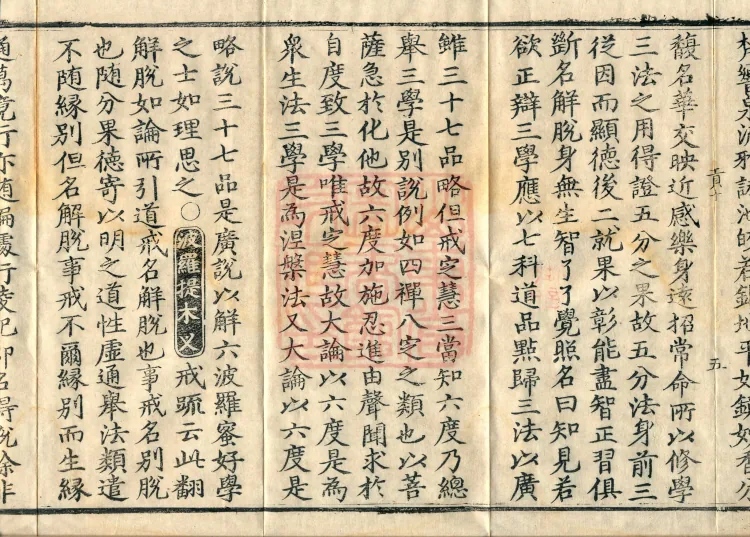 馥名華交映近感樂身遠招常命所以修學
三法之用得證五分之果故五分法身前三
從因而顯德後二就果以彰能盡智正習俱
斷名解脫身無生智了了覺照名曰知見若
欲正辯三學應以七科道品點歸三法以廣
雖三十七品略但戒定慧三當知六度乃總
舉三學是別說例如四禪八定之類也以菩
薩急於化他故六度加施忍進由聲聞求於
自度致三學唯戒定慧故大論以六度是為
眾生法三學是為涅槃法又大論以六度是
略說三十七品是廣說以解六波羅蜜好學
之士如理思之○波羅提木叉 戒疏云此翻
解脫如論所引道戒名解脫也事戒名別脫
也随分果德寄以明之道性虛通舉法類遣
不随緣別但名解脫事戒不爾緣別而生緣